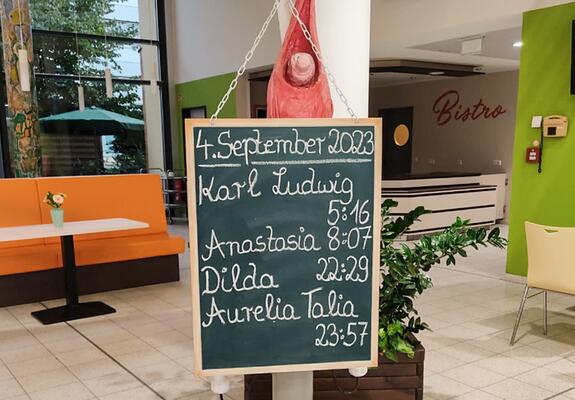 Bistro
4. September 2023
Karl Ludwig
5:16
Anastasia 8:07
Dilda 22:29
Aurelia Talia
23:57